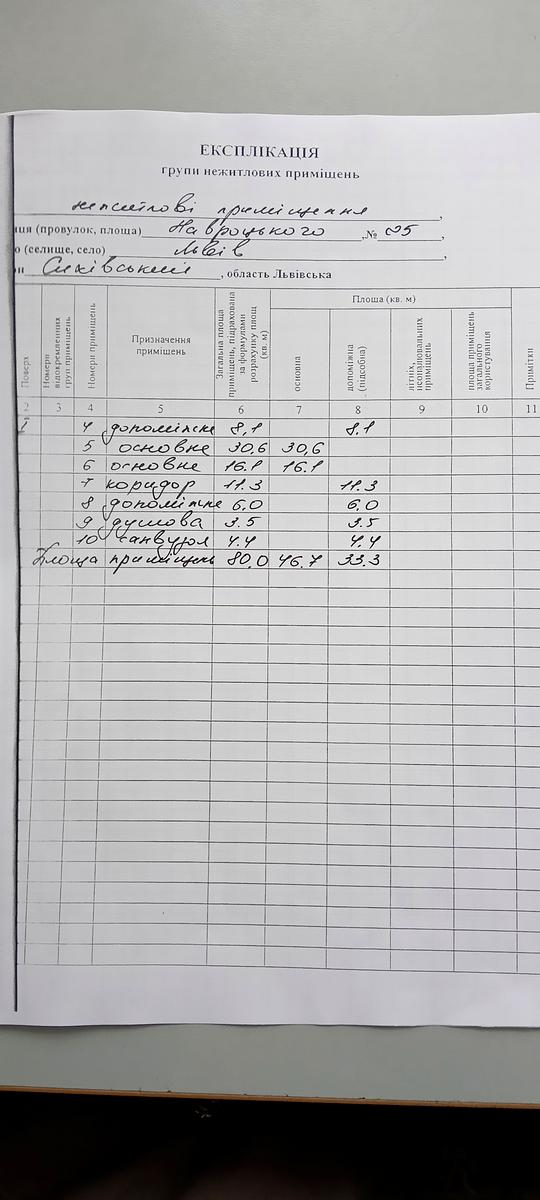 ЕКСПЛІКАЦІЯ
групи нежитлових приміщень
нежитлові приміщення,
иця (провулок, площа) Навроцького, № 25,
о (селище, село) Львів,
н Сихівський, область Львівська
Поверх
Номери відокремлених груп приміщень
Номери приміщень
Призначення приміщень
Загальна площа приміщень, підрахована за формулами розрахунку площ (кв. м)
Площа (кв. м)
основна
допоміжна (підсобна)
літніх, неопалювальних приміщень
площа приміщень загального користування
Примітки
2 3 4 5 6 7 8 9 10 11
I 4 допоміжне 8,1 8.1
5 основне 30,6 30,6
6 основне 16.1 16.1
7 коридор 11.3 11.3
8 допоміжне 6.0 6.0
9 душова 3.5 3.5
10 санвузол 4.4 4.4
Площа приміщень 80.0 46.7 33.3